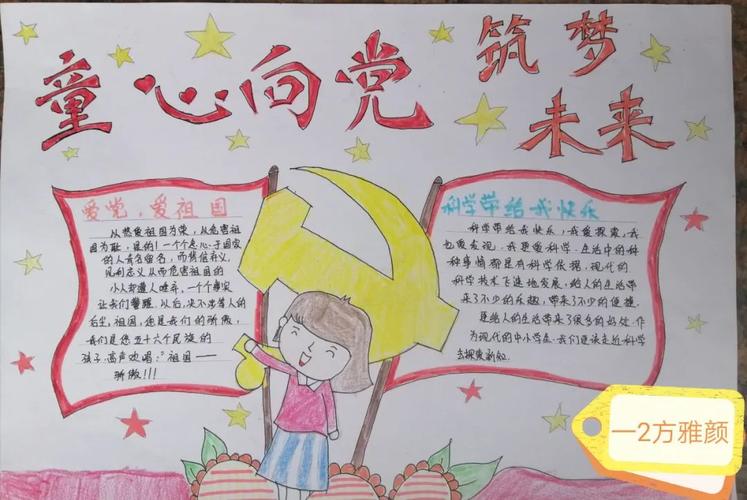 童心向党
筑梦
未来
爱党，爱祖国
从热爱祖国为荣，从危害祖
国为耻，是的！一个个忠心于国家
的人青名留名，而背信弃义，
见利忘义从而危害祖国的
小人却遭人唾弃，一个个事实
让我们警醒，以后，决不步答人的
后尘，祖国，您是我们的骄傲，
我们是您五十六个民族的
孩子，高声欢唱："祖国——
骄傲！！！
科学带给我快乐
科学带给我快乐，我爱探索，我
也爱发现，我更爱科学，生活中的种
种事情都是有科学依据，现代的
科学技术飞速地发展，给人的生活带
来了不少的乐趣，带来了不少的便捷，
更给人们的生活带来了很多的好处，作
为现代的中小学生，我们更该走近科学
去探索新知。
一2方雅颜